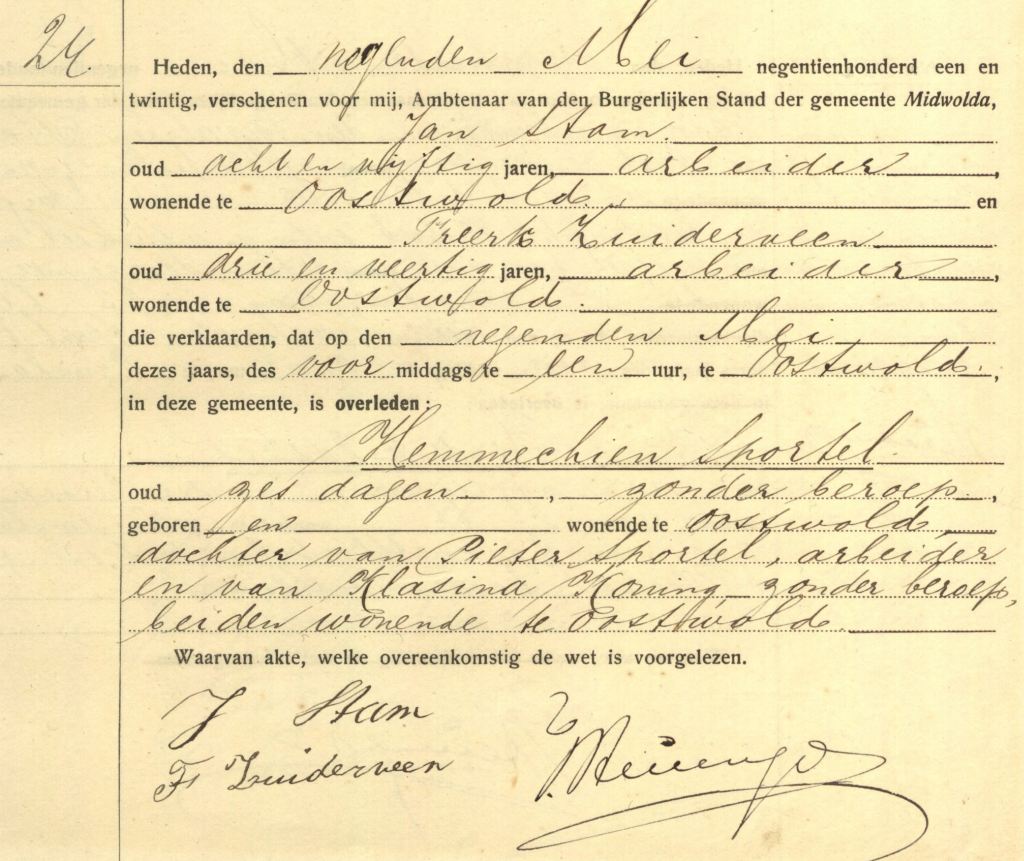 24.
Heden, den negenden Mei negentienhonderd een en
twintig, verschenen voor mij, Ambtenaar van den Burgerlijken Stand der gemeente Midwolda,
Jan Stam.
oud acht en vijftig jaren, arbeider,
wonende te Oostwold, en
Freerk Zuiderveen
oud drie en veertig jaren, arbeider,
wonende te Oostwold.
die verklaarden, dat op den negenden Mei
dezes jaars, des voor middags te een uur, te Oostwold.,
in deze gemeente, is overleden:
Hemmechien Sportel.
oud zes dagen, zonder beroep,
geboren en wonende te Oostwold,
dochter van Pieter Sportel, arbeider
en van Klasina Koning, zonder beroep,
beiden wonende te Oostwold.
Waarvan akte, welke overeenkomstig de wet is voorgelezen.
J Stam
Fr Zuiderveen